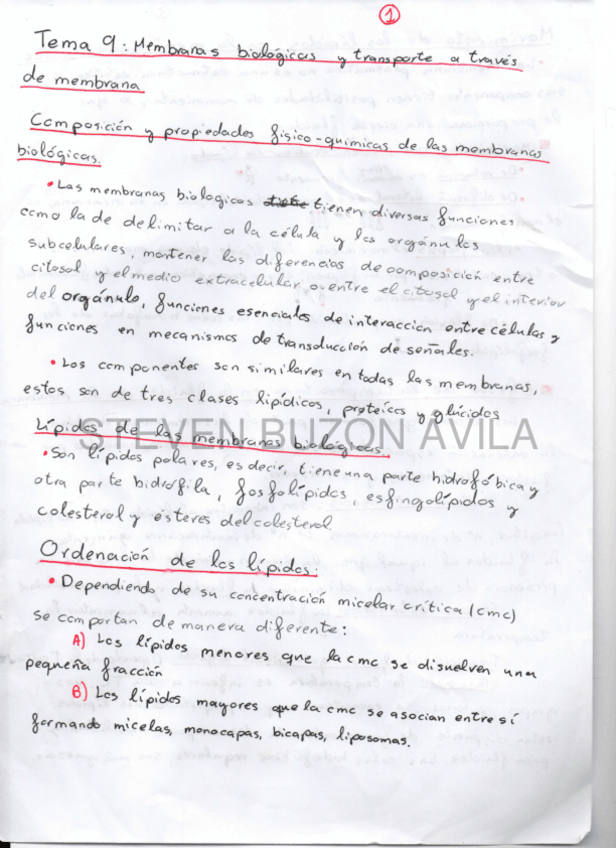 1
Tema 9: Membranas biológicas y transporte a través
de membrana
Composición y propiedades físico-químicas de las membranas
biológicas.
• Las membranas biologicas tiene tienen diversas funciones
como la de delimitar a la célula y los orgánulos
subcelulares, mantener las diferencias de composición entre
citosol y el medio extracelular o entre el citosol y el interior
del orgánulo, funciones esenciales de interacción entre células y
funciones en mecanismos de transducción de señales.
• Los componentes son similares en todas las membranas,
estos son de tres clases lipídicos, proteícos y glúcidos
Lípidos de las membranas biológicas.
STEVEN BUZON AVILA
• Son lípidos polares, es decir, tiene una parte hidrofóbica y
otra parte hidrófila, fosfolípidos, esfingolípidos y
colesterol y ésteres del colesterol
Ordenación de los lípidos.
• Dependiendo de su concentración micelar crítica (cmc)
se comportan de manera diferente:
A) Los lípidos menores que la cmc se disuelven una
pequeña fracción
B) Los lípidos mayores que la cmc se asocian entre sí
formando micelas, monocapas, bicapas, liposomas.